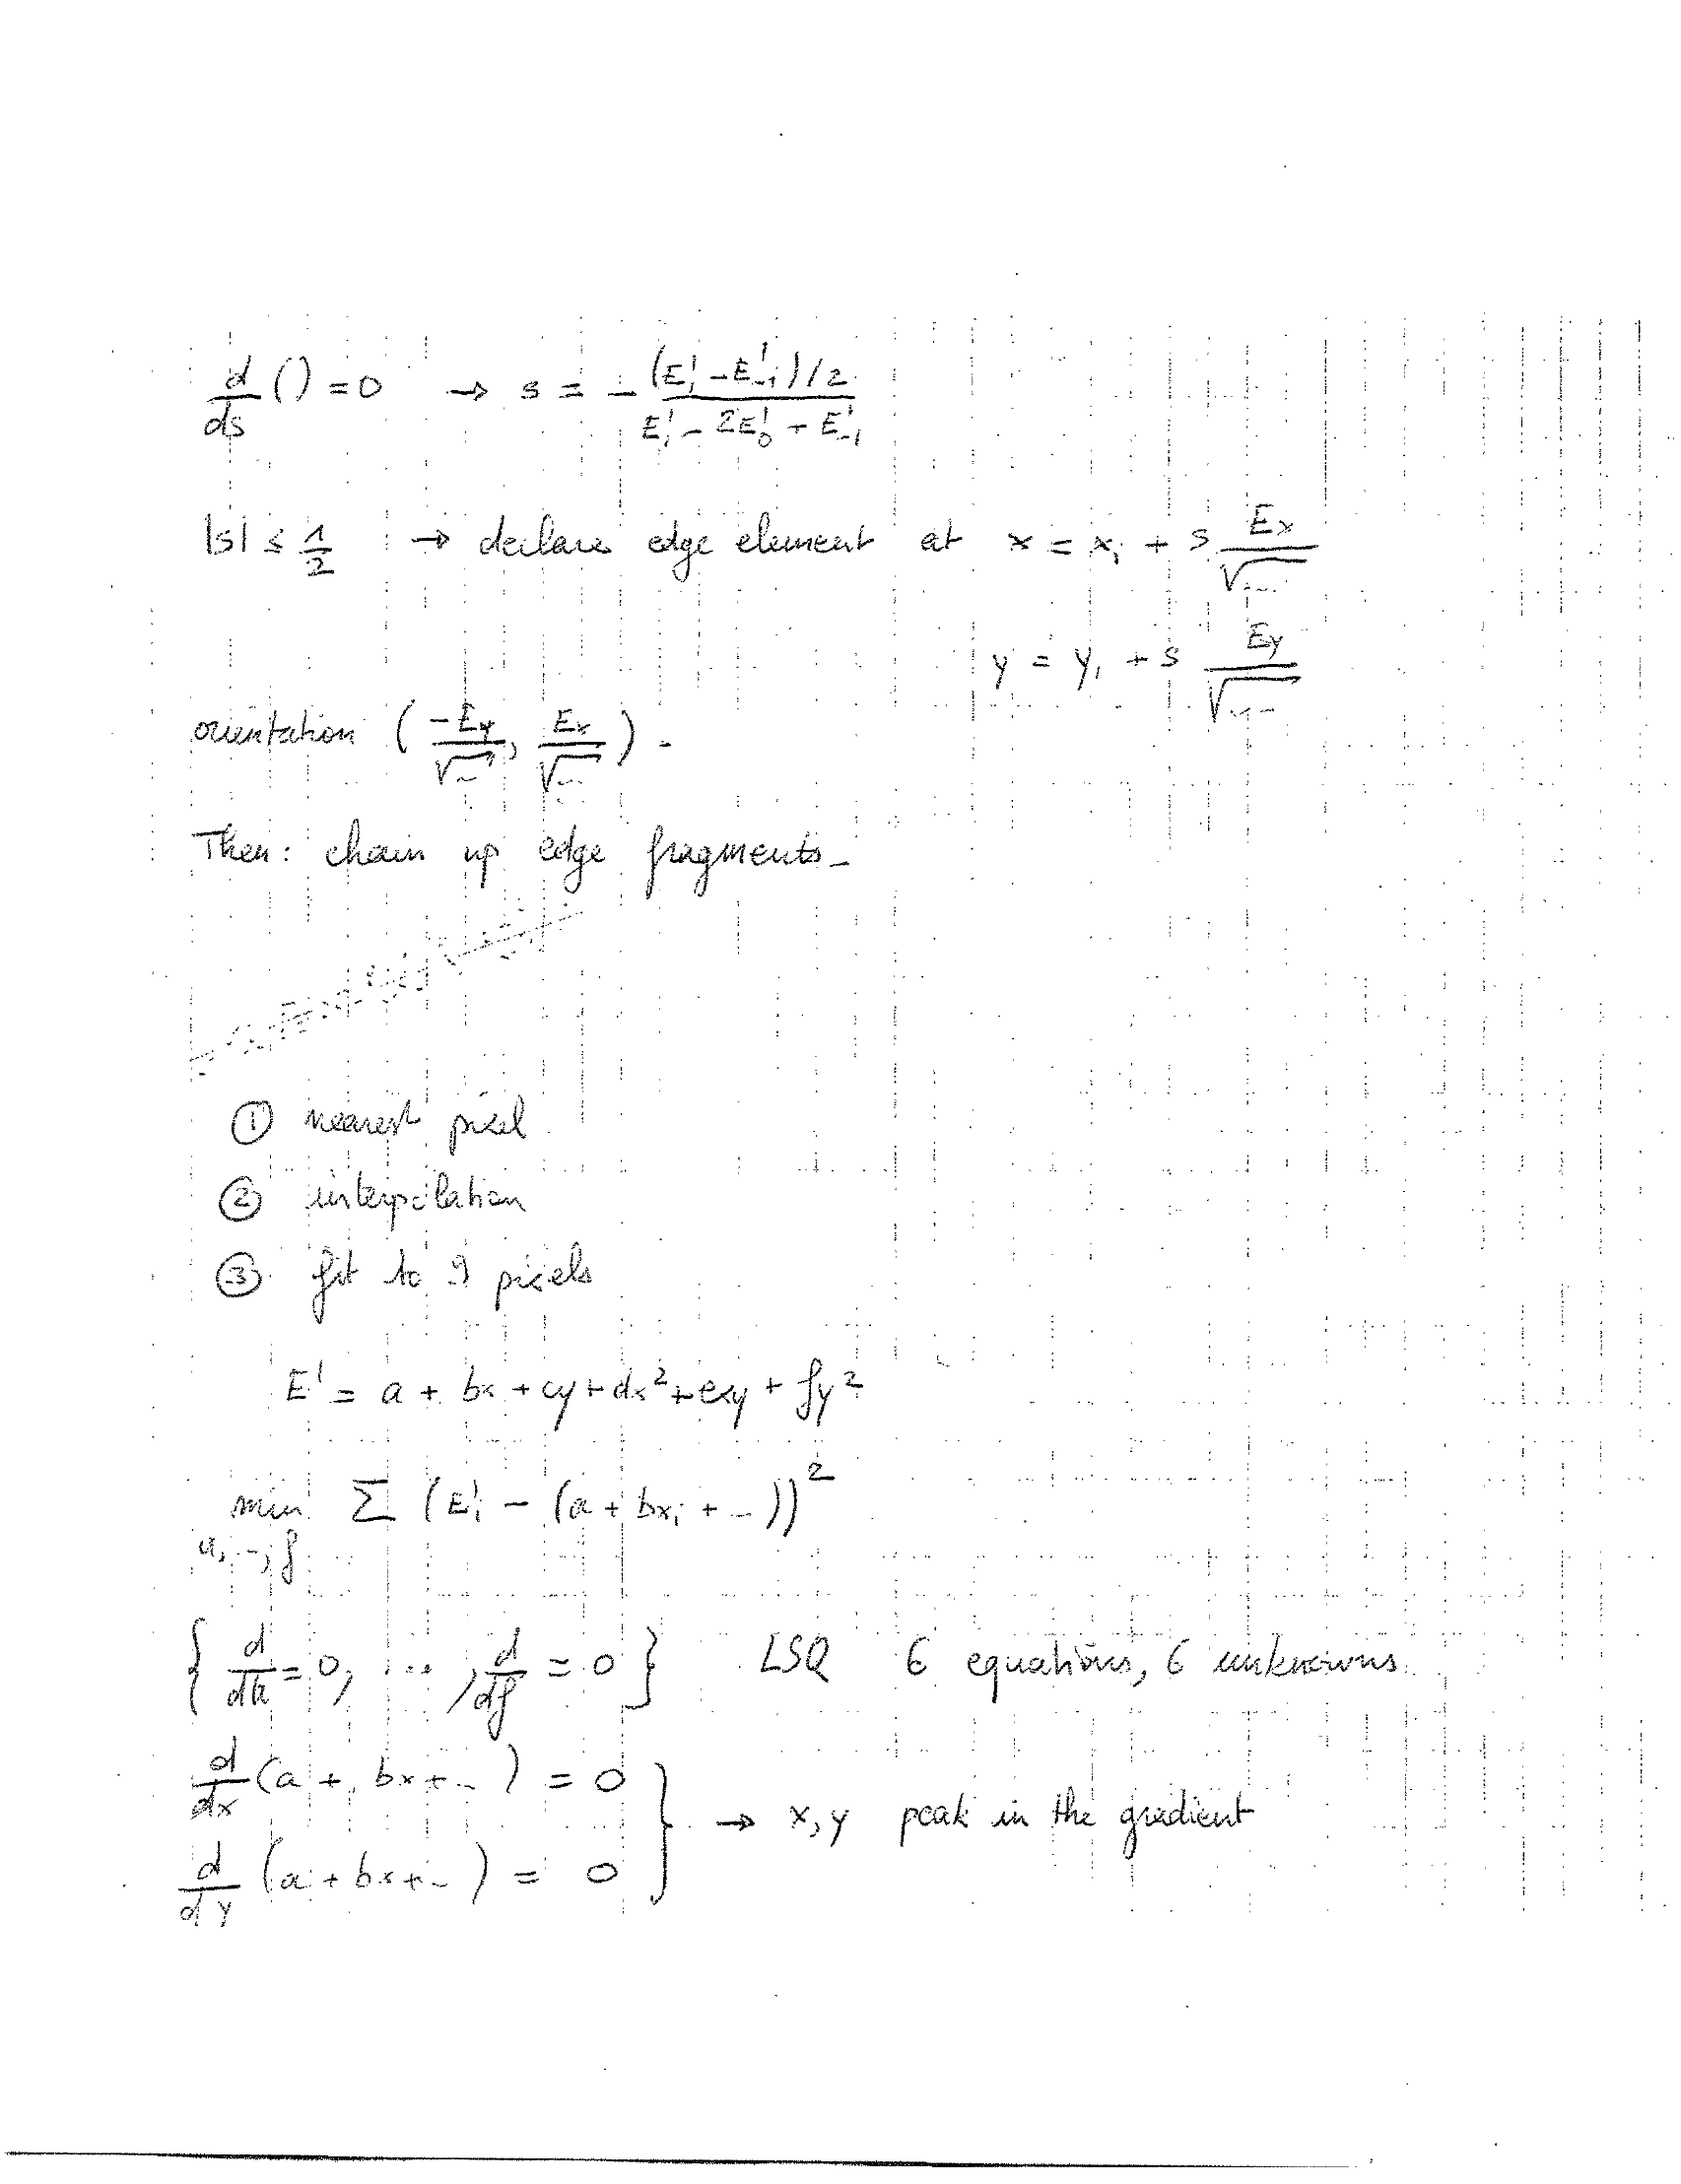 d/ds () = 0 → s = - (E'₁ - E'₋₁)/2 / (E'₁ - 2E'₀ + E'₋₁)
|s| ≤ 1/2 → declare edge element at x = xᵢ + s Ex/√...
y = yᵢ + s Ey/√...
orientation (-Ey/√..., Ex/√...).
Then: chain up edge fragments.
① nearest pixel
② interpolation
③ fit to 9 pixels
E' = a + bx + cy + dx² + exy + fy²
min Σ (E'ᵢ - (a + bxᵢ + ...))²
a, .., f
{ d/da = 0, ..., d/df = 0 } LSQ 6 equations, 6 unknowns
d/dx (a + bx + ...) = 0
→ x, y peak in the gradient
d/dy (a + bx + ...) = 0